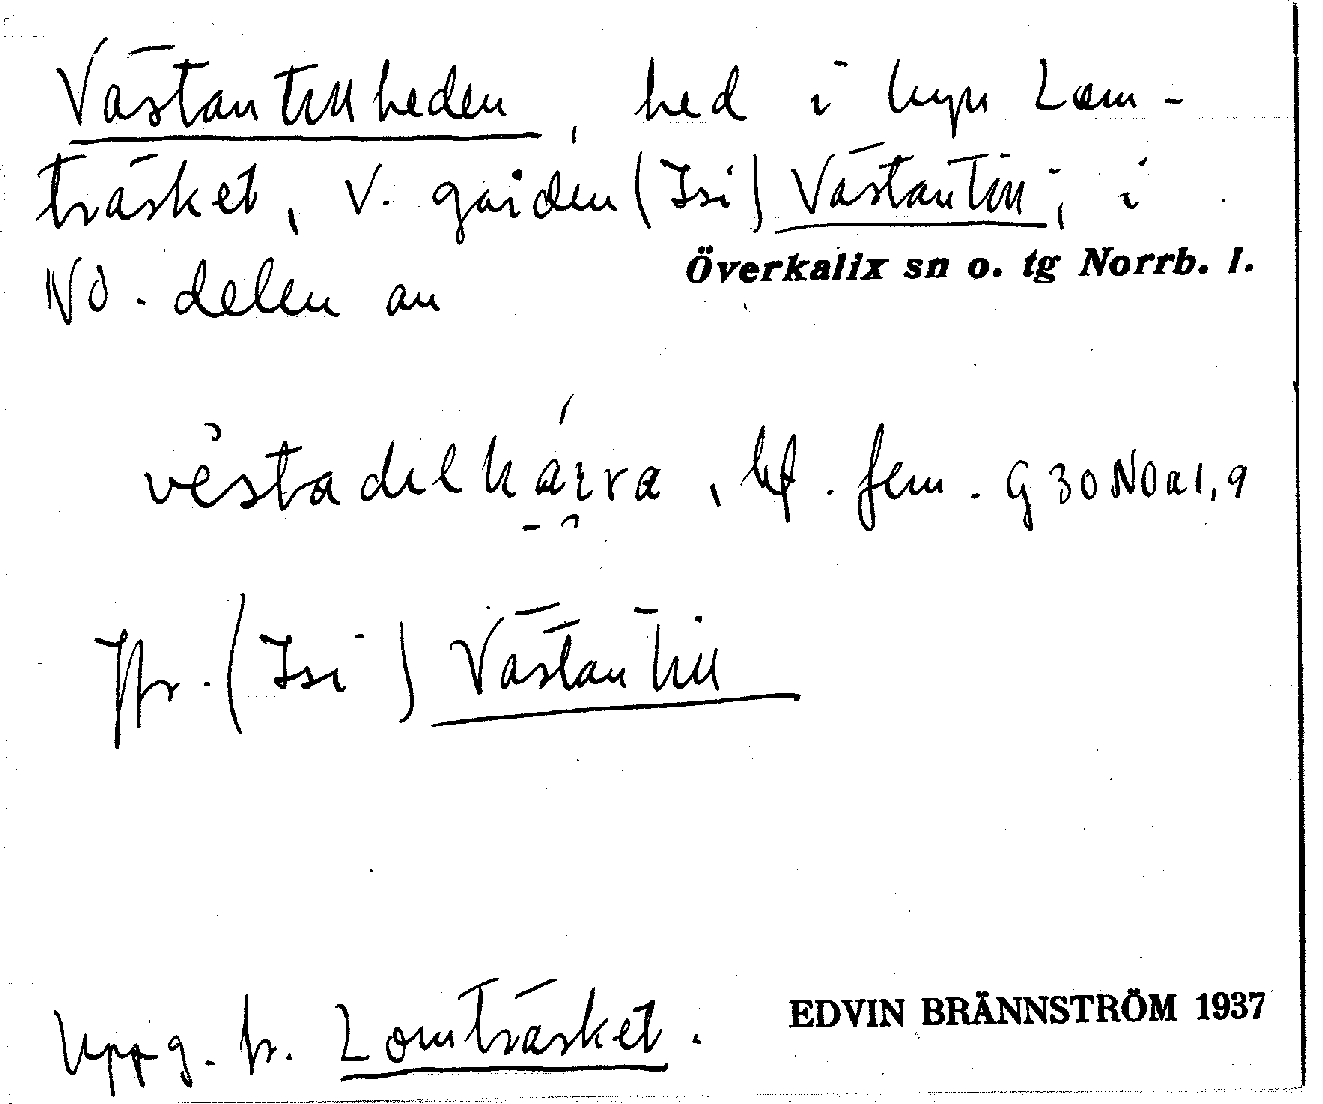 Västantillheden, hed i byn Lom-
träsket, V. gården (Isi) Västantill; i
NO. delen av Överkalix sn o. tg Norrb. l.
bf. fem. G30NOa1,9
Jfr. (Isi) Västantill
Uppg. fr. Lomträsket.
EDVIN BRÄNNSTRÖM 1937